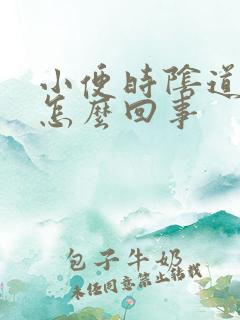 小便時陰道
怎麼回事
包子牛奶
未經同意禁止轉載